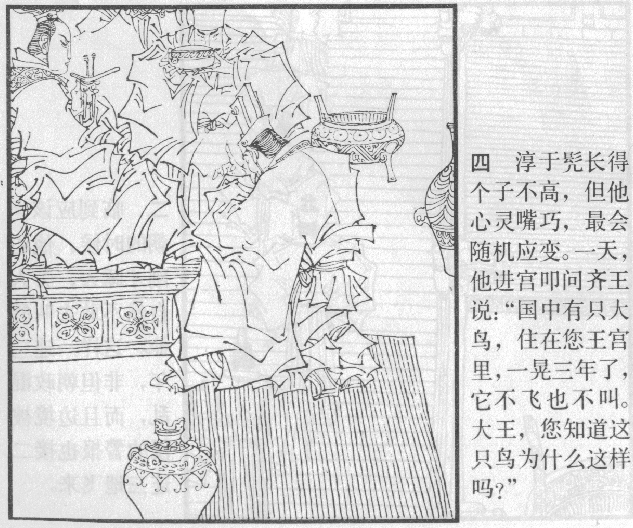 四　淳于髡长得
个子不高，但他
心灵嘴巧，最会
随机应变。一天，
他进宫叩问齐王
说：“国中有只大
鸟，住在您王宫
里，一晃三年了，
它不飞也不叫。
大王，您知道这
只鸟为什么这样
吗？”